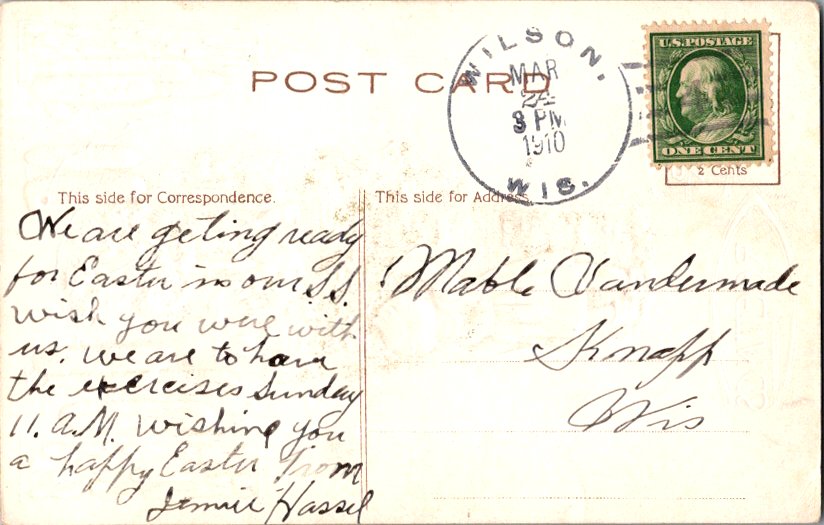 POST CARD
WILSON,
MAR
24
3 PM
1910
WIS.
U.S. POSTAGE
ONE CENT
2 Cents
This side for Correspondence.
We are geting ready
for Easter in our S.S.
wish you were with
us. we are to have
the exercises Sunday
11. A.M. Wishing you
a happy Easter from
Jennie Hassel
This side for Address.
Mable Vandermade
Knapp
Wis